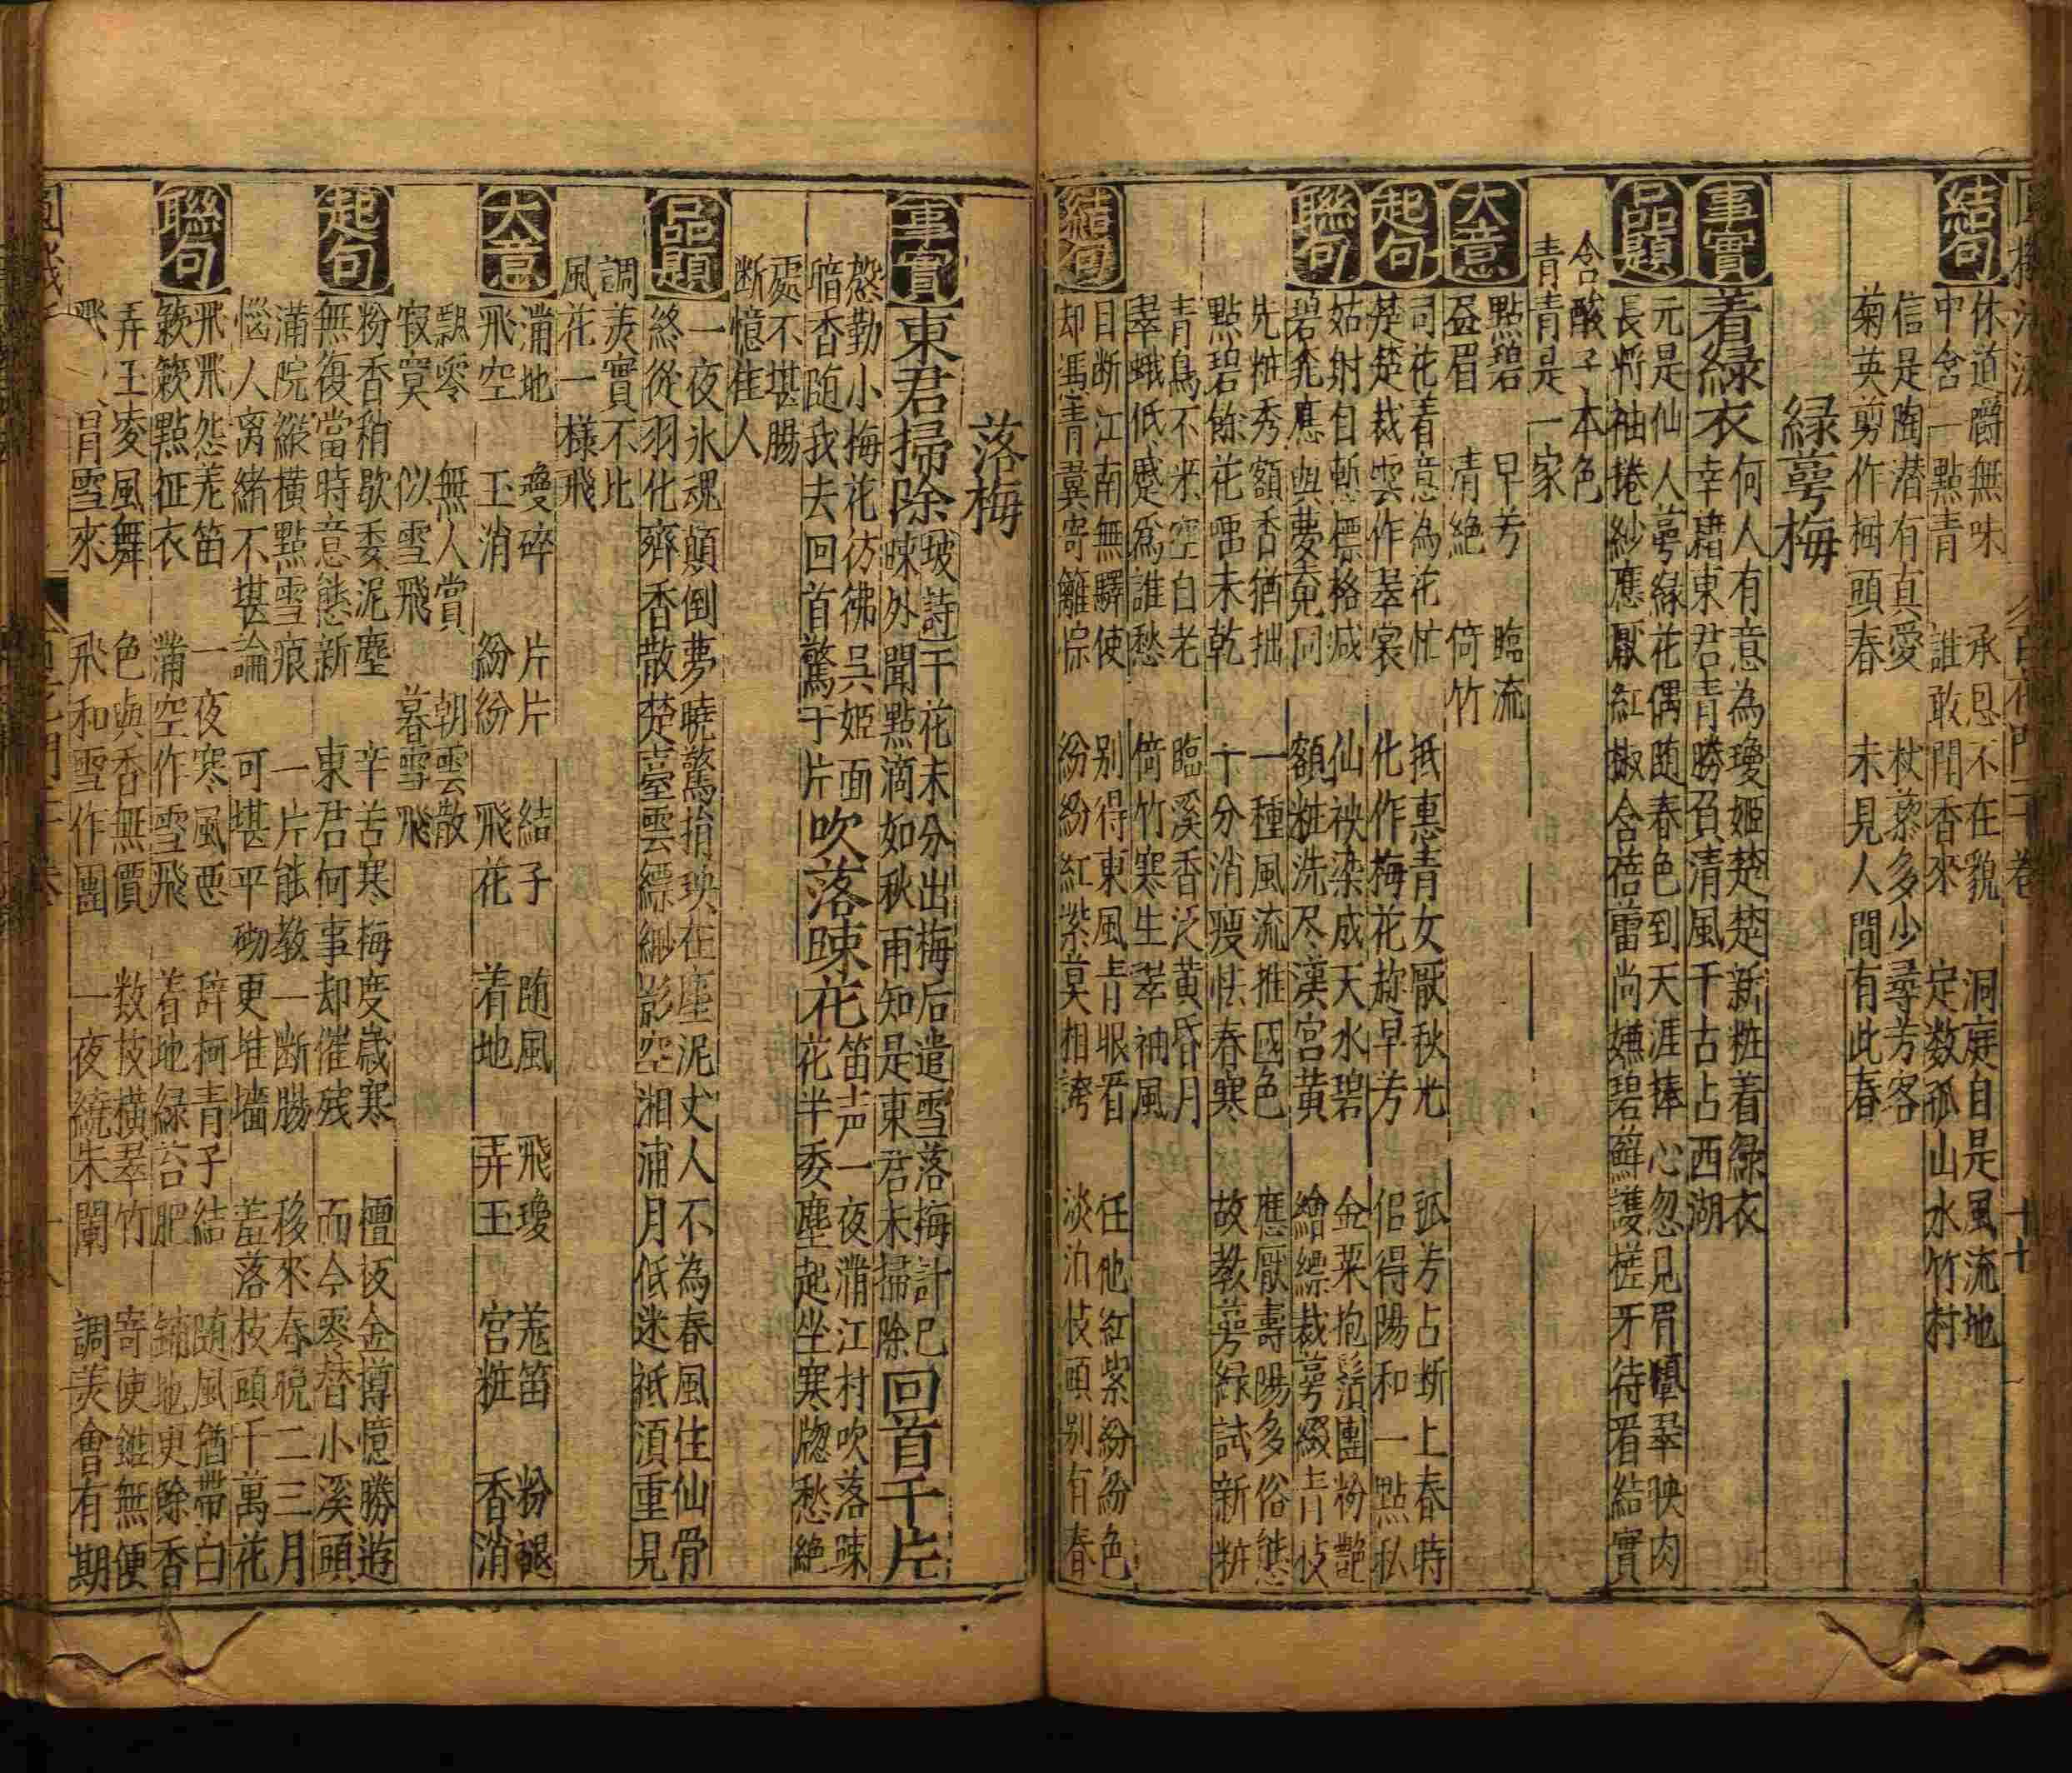 結句
休道嚼無味　承恩不在貌　洞庭自是風流地
中含一點青　誰敢鬪香來　定数孤山水竹村
信是陶潜有真愛　杖藜多少尋芳客
菊英剪作樹頭春　未見人間有此春
緑萼梅
事實
着緑衣
何人有意為瓊姬楚楚新粧着緑衣
幸藉東君青勝負清風千古占西湖
品題
元是仙人萼緑花偶随春色到天涯捧心忽見眉顰翠映肉
長將袖捲紗應厭紅椒含蓓蕾尚嫌碧蘚護槎牙待看結實
含酸子本色
青青是一家
大意
點碧　早芳　臨流
益眉　清絶　倚竹
起句
司花着意為花忙　抵惠青女厭秋光　孤芳占断上春時
楚楚裁雲作翠裳　化作梅花趂早芳　侶得陽和一點私
聯句
姑射自慙標格减　仙袂染成天水碧　金菜抱鬚團粉艶
碧兖應與夢魂同　額粧洗尽漢宮黃　繪縹裁萼綴青枝
先粧秀額香猶拙　一種風流推國色　應厭壽陽多俗態
點碧餘花啑未乾　十分消瘦怯春寒　故教萼緑試新粧
青鳥不来空白老　臨溪香泛黃昏月
翠蛾低蹙爲誰愁　倚竹寒生翠袖風
結句
目断江南無驛使　别得東風青眼看　任他紅紫紛紛色
却馮青䕶寄籬悰　紛紛紅紫莫相誇　淡泊枝頭别有春
落梅
事實
東君掃除
坡詩千花未分出梅后遣雪落梅計已
暕外聞點滴如秋雨知是東君未掃除
回首千片
慇勤小梅花彷彿呉姬面
暗香随我去回首驚千片
吹落暕花
笛声一夜滿江村吹落暕
花半委塵起坐寒牕愁絶
處不堪腸
断憶隹人
品題
一夜氷魂顛倒夢曉驚捐玦在塵泥丈人不為春風住仙骨
終從羽化齊香散楚臺雲縹緲影空湘浦月低迷祗湏重見
調羮實不比
風花一様飛
大意
滿地　瓊碎　片片　結子　随風　飛瓊　羗笛　粉褪
飛空　玉消　紛紛　飛花　着地　弄玉　宮粧　香消
飄零　無人賞　朝雲散
寂寞　似雪飛　暮雪飛
起句
粉香稍歇委泥塵　辛苦寒梅度歳寒　檀板金罇憶勝遊
無復當時意態新　東君何事却催残　而今零替小溪頭
滿院縱橫點雪痕　一片能教一断腸　移來春晚二三月
惱人离緒不堪論　可堪平砌更堆墻　羞落枝頭千萬花
聯句
飛飛怨羌笛　一夜寒風悪　辞柯青子結　随風猶帶白
簌簌點征衣　蒲空作雪飛　着地緑苔肥　鋪地更餘香
弄玉凌風舞　色與香無價　数枝橫翠竹　寄使鎡無便
飛　　眉雪來　飛和雪作團　一夜繞朱闌　調羮會有期